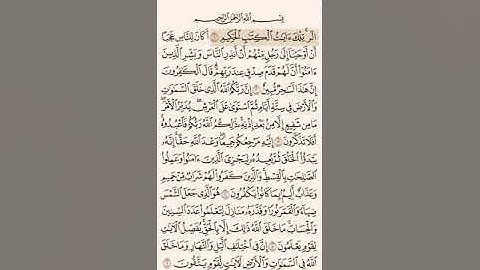 بِسْمِ ٱللَّهِ ٱلرَّحْمَٰنِ ٱلرَّحِيمِ
الٓر ۚ تِلْكَ ءَايَٰتُ ٱلْكِتَٰبِ ٱلْحَكِيمِ ١ أَكَانَ لِلنَّاسِ عَجَبًا
أَنْ أَوْحَيْنَآ إِلَىٰ رَجُلٍ مِّنْهُمْ أَنْ أَنذِرِ ٱلنَّاسَ وَبَشِّرِ ٱلَّذِينَ
ءَامَنُوٓا۟ أَنَّ لَهُمْ قَدَمَ صِدْقٍ عِندَ رَبِّهِمْ ۗ قَالَ ٱلْكَٰفِرُونَ
إِنَّ هَٰذَا لَسَٰحِرٌ مُّبِينٌ ٢ إِنَّ رَبَّكُمُ ٱللَّهُ ٱلَّذِى خَلَقَ ٱلسَّمَٰوَٰتِ
وَٱلْأَرْضَ فِى سِتَّةِ أَيَّامٍ ثُمَّ ٱسْتَوَىٰ عَلَى ٱلْعَرْشِ ۖ يُدَبِّرُ ٱلْأَمْرَ ۖ
مَا مِن شَفِيعٍ إِلَّا مِنۢ بَعْدِ إِذْنِهِۦ ۚ ذَٰلِكُمُ ٱللَّهُ رَبُّكُمْ فَٱعْبُدُوهُ ۚ
أَفَلَا تَذَكَّرُونَ ٣ إِلَيْهِ مَرْجِعُكُمْ جَمِيعًا ۖ وَعْدَ ٱللَّهِ حَقًّا ۚ إِنَّهُۥ
يَبْدَؤُا۟ ٱلْخَلْقَ ثُمَّ يُعِيدُهُۥ لِيَجْزِىَ ٱلَّذِينَ ءَامَنُوا۟ وَعَمِلُوا۟
ٱلصَّٰلِحَٰتِ بِٱلْقِسْطِ ۚ وَٱلَّذِينَ كَفَرُوا۟ لَهُمْ شَرَابٌ مِّنْ حَمِيمٍ
وَعَذَابٌ أَلِيمٌۢ بِمَا كَانُوا۟ يَكْفُرُونَ ٤ هُوَ ٱلَّذِى جَعَلَ ٱلشَّمْسَ
ضِيَآءً وَٱلْقَمَرَ نُورًا وَقَدَّرَهُۥ مَنَازِلَ لِتَعْلَمُوا۟ عَدَدَ ٱلسِّنِينَ
وَٱلْحِسَابَ ۚ مَا خَلَقَ ٱللَّهُ ذَٰلِكَ إِلَّا بِٱلْحَقِّ ۚ يُفَصِّلُ ٱلْءَايَٰتِ
لِقَوْمٍ يَعْلَمُونَ ٥ إِنَّ فِى ٱخْتِلَٰفِ ٱلَّيْلِ وَٱلنَّهَارِ وَمَا خَلَقَ
ٱللَّهُ فِى ٱلسَّمَٰوَٰتِ وَٱلْأَرْضِ لَءَايَٰتٍ لِّقَوْمٍ يَتَّقُونَ ٦